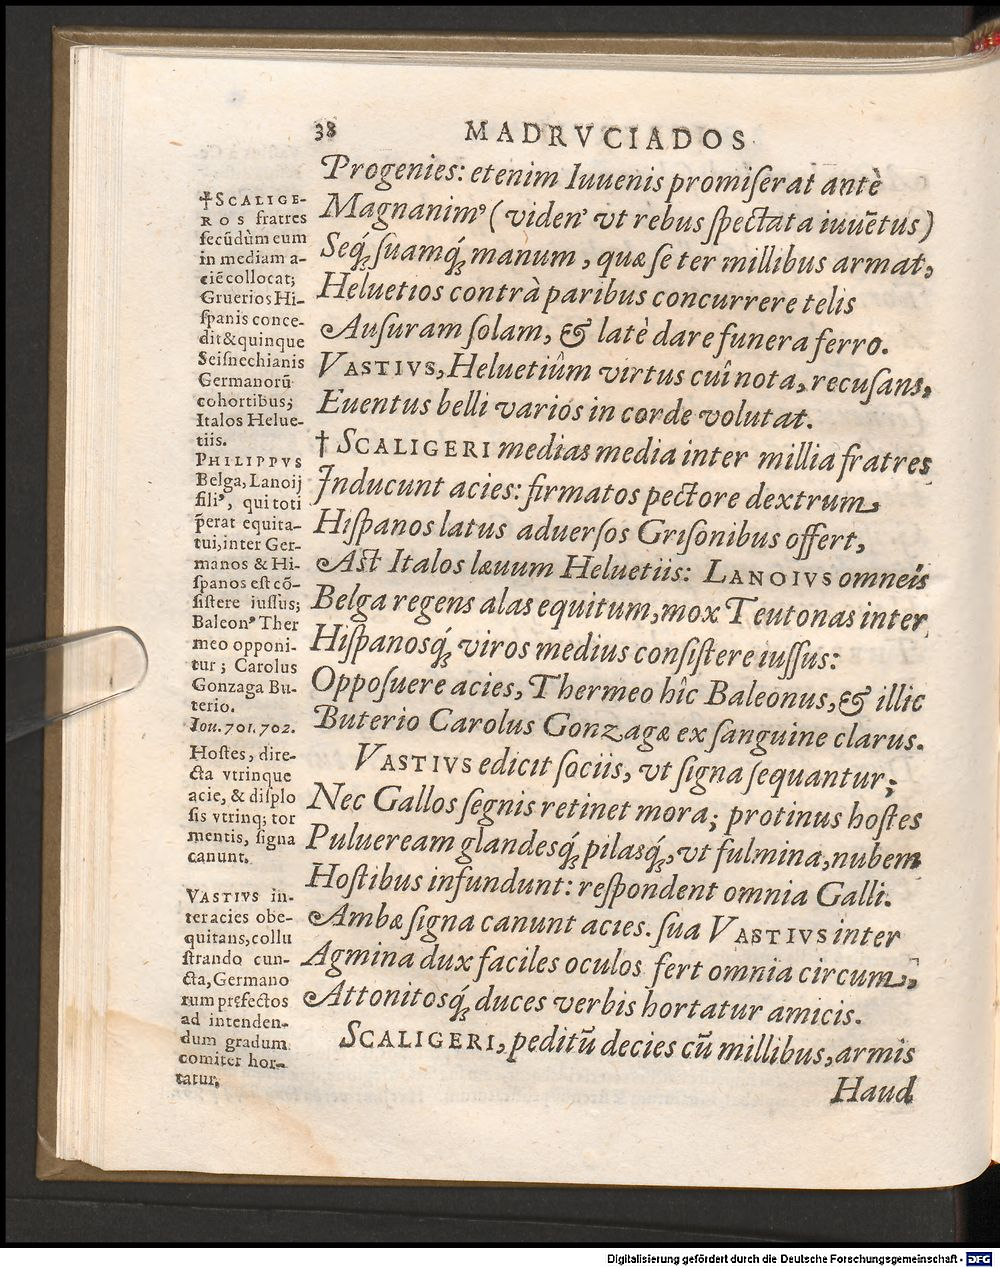 38 MADRVCIADOS
Progenies: etenim Iuuenis promiserat antè
Magnanimꝰ (viden' vt rebus spectata iuuẽtus)
Seq́ꝫ suamq́ꝫ manum, quæ se ter millibus armat,
Heluetios contrà paribus concurrere telis
Ausuram solam, & latè dare funera ferro.
VASTIVS, Heluetiûm virtus cuî nota, recusans,
Euentus belli varios in corde volutat.
† SCALIGERI medias media inter millia fratres
Inducunt acies: firmatos pectore dextrum
Hispanos latus aduersos Grisonibus offert,
Ast Italos læuum Heluetiis: LANOIVS omneis
Belga regens alas equitum, mox Teutonas inter
Hispanosq́ꝫ viros medius consistere iussus:
Opposuere acies, Thermeo hîc Baleonus, & illic
Buterio Carolus Gonzagæ ex sanguine clarus.
VASTIVS edicit sociis, vt signa sequantur;
Nec Gallos segnis retinet mora; protinus hostes
Pulueream glandesq́ꝫ pilasq́ꝫ, vt fulmina, nubem
Hostibus infundunt: respondent omnia Galli.
Ambæ signa canunt acies. sua VASTIVS inter
Agmina dux faciles oculos fert omnia circum,
Attonitosq́ꝫ duces verbis hortatur amicis.
SCALIGERI, peditũ decies cũ millibus, armis
Haud
†SCALIGE-
ROS fratres
secũdùm eum
in mediam a-
ciẽ collocat;
Gruerios Hi-
spanis conce-
dit & quinque
Seisnechianis
Germanorũ
cohortibus;
Italos Helue-
tiis.
PHILIPPVS
Belga, Lanoij
filiꝰ, qui toti
p̃erat equita-
tui, inter Ger-
manos & Hi-
spanos est cõ-
sistere iussus;
Baleonꝰ Ther
meo opponi-
tur; Carolus
Gonzaga Bu-
terio.
Iou. 701. 702.
Hostes, dire-
cta vtrinque
acie, & displo
sis vtrinq; tor
mentis, signa
canunt.
VASTIVS in-
ter acies obe-
quitans, collu
strando cun-
cta, Germano
rum præfectos
ad intenden-
dum gradum
comiter hor-
tatur.
Digitalisierung gefördert durch die Deutsche Forschungsgemeinschaft - DFG